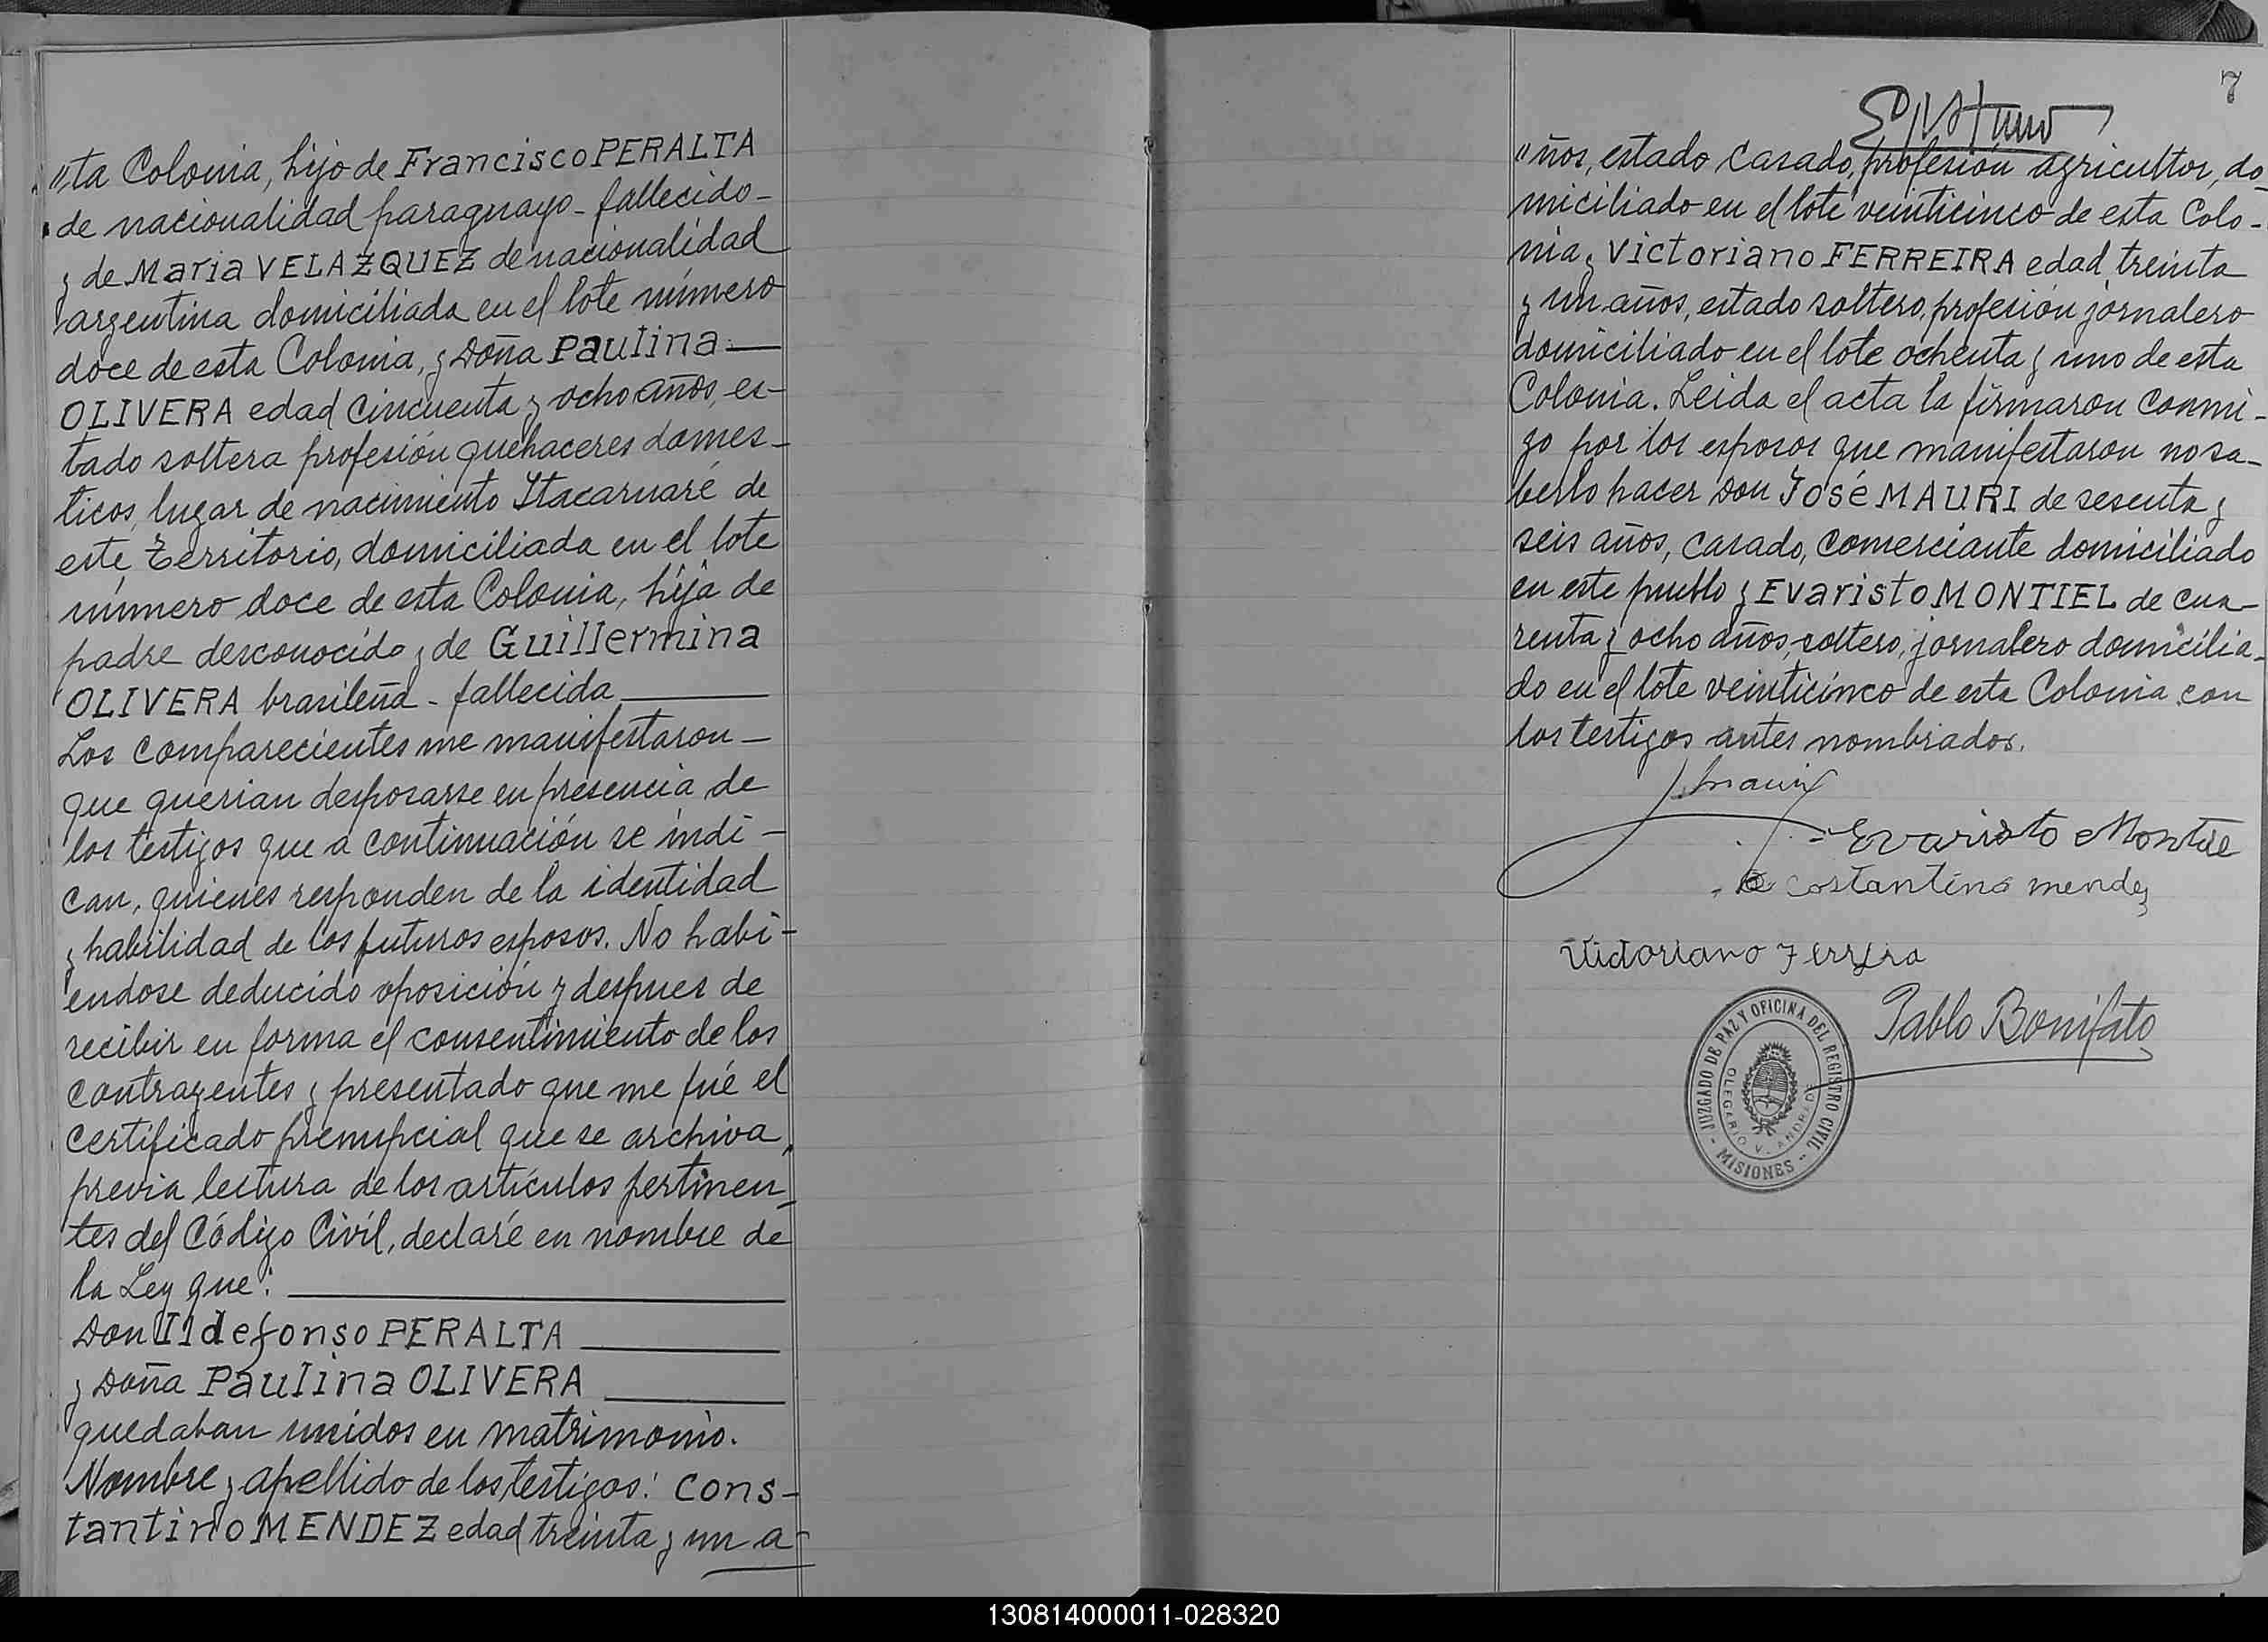 "ta Colonia, hijo de Francisco PERALTA
de nacionalidad paraguayo - fallecido -
y de Maria VELAZQUEZ de nacionalidad
argentina domiciliada en el lote número
doce de esta Colonia, y Doña Paulina
OLIVERA edad cincuenta y ocho años, es-
tado soltera profesión quehaceres domes-
ticos, lugar de nacimiento Itacaruaré de
este Territorio, domiciliada en el lote
número doce de esta Colonia, hija de
padre desconocido y de Guillermina
OLIVERA brasileña - fallecida
Los comparecientes me manifestaron -
que querian desposarse en presencia de
los testigos que a continuación se indi-
can, quienes responden de la identidad
y habilidad de los futuros esposos. No habi-
endose deducido oposición y despues de
recibir en forma el consentimiento de los
contrayentes y presentado que me fué el
certificado prenupcial que se archiva,
previa lectura de los artículos pertinen-
tes del Código Civil, declaré en nombre de
la Ley que:
Don Ildefonso PERALTA
y Doña Paulina OLIVERA
quedaban unidos en matrimonio.
Nombre y apellido de los testigos: Cons-
tantino MENDEZ edad treinta y un a-
7
"ños, estado casado, profesión agricultor, do-
miciliado en el lote veinticinco de esta Colo-
nia y Victoriano FERREIRA edad treinta
y un años, estado soltero, profesión jornalero
domiciliado en el lote ochenta y uno de esta
Colonia. Leida el acta la firmaron conmi-
go por los esposos que manifestaron no sa-
berlo hacer Don José MAURI de sesenta y
seis años, casado, comerciante domiciliado
en este pueblo y Evaristo MONTIEL de cua-
renta y ocho años, soltero, jornalero domicilia-
do en el lote veinticinco de esta Colonia con
los testigos antes nombrados.
J. Mauri
Evaristo Montie
costantino mendez
Victoriano Ferrera
Pablo Bonifato
JUZGADO DE PAZ Y OFICINA DEL REGISTRO CIVIL
OLEGARIO V. ANDRADE
- MISIONES -
130814000011-028320